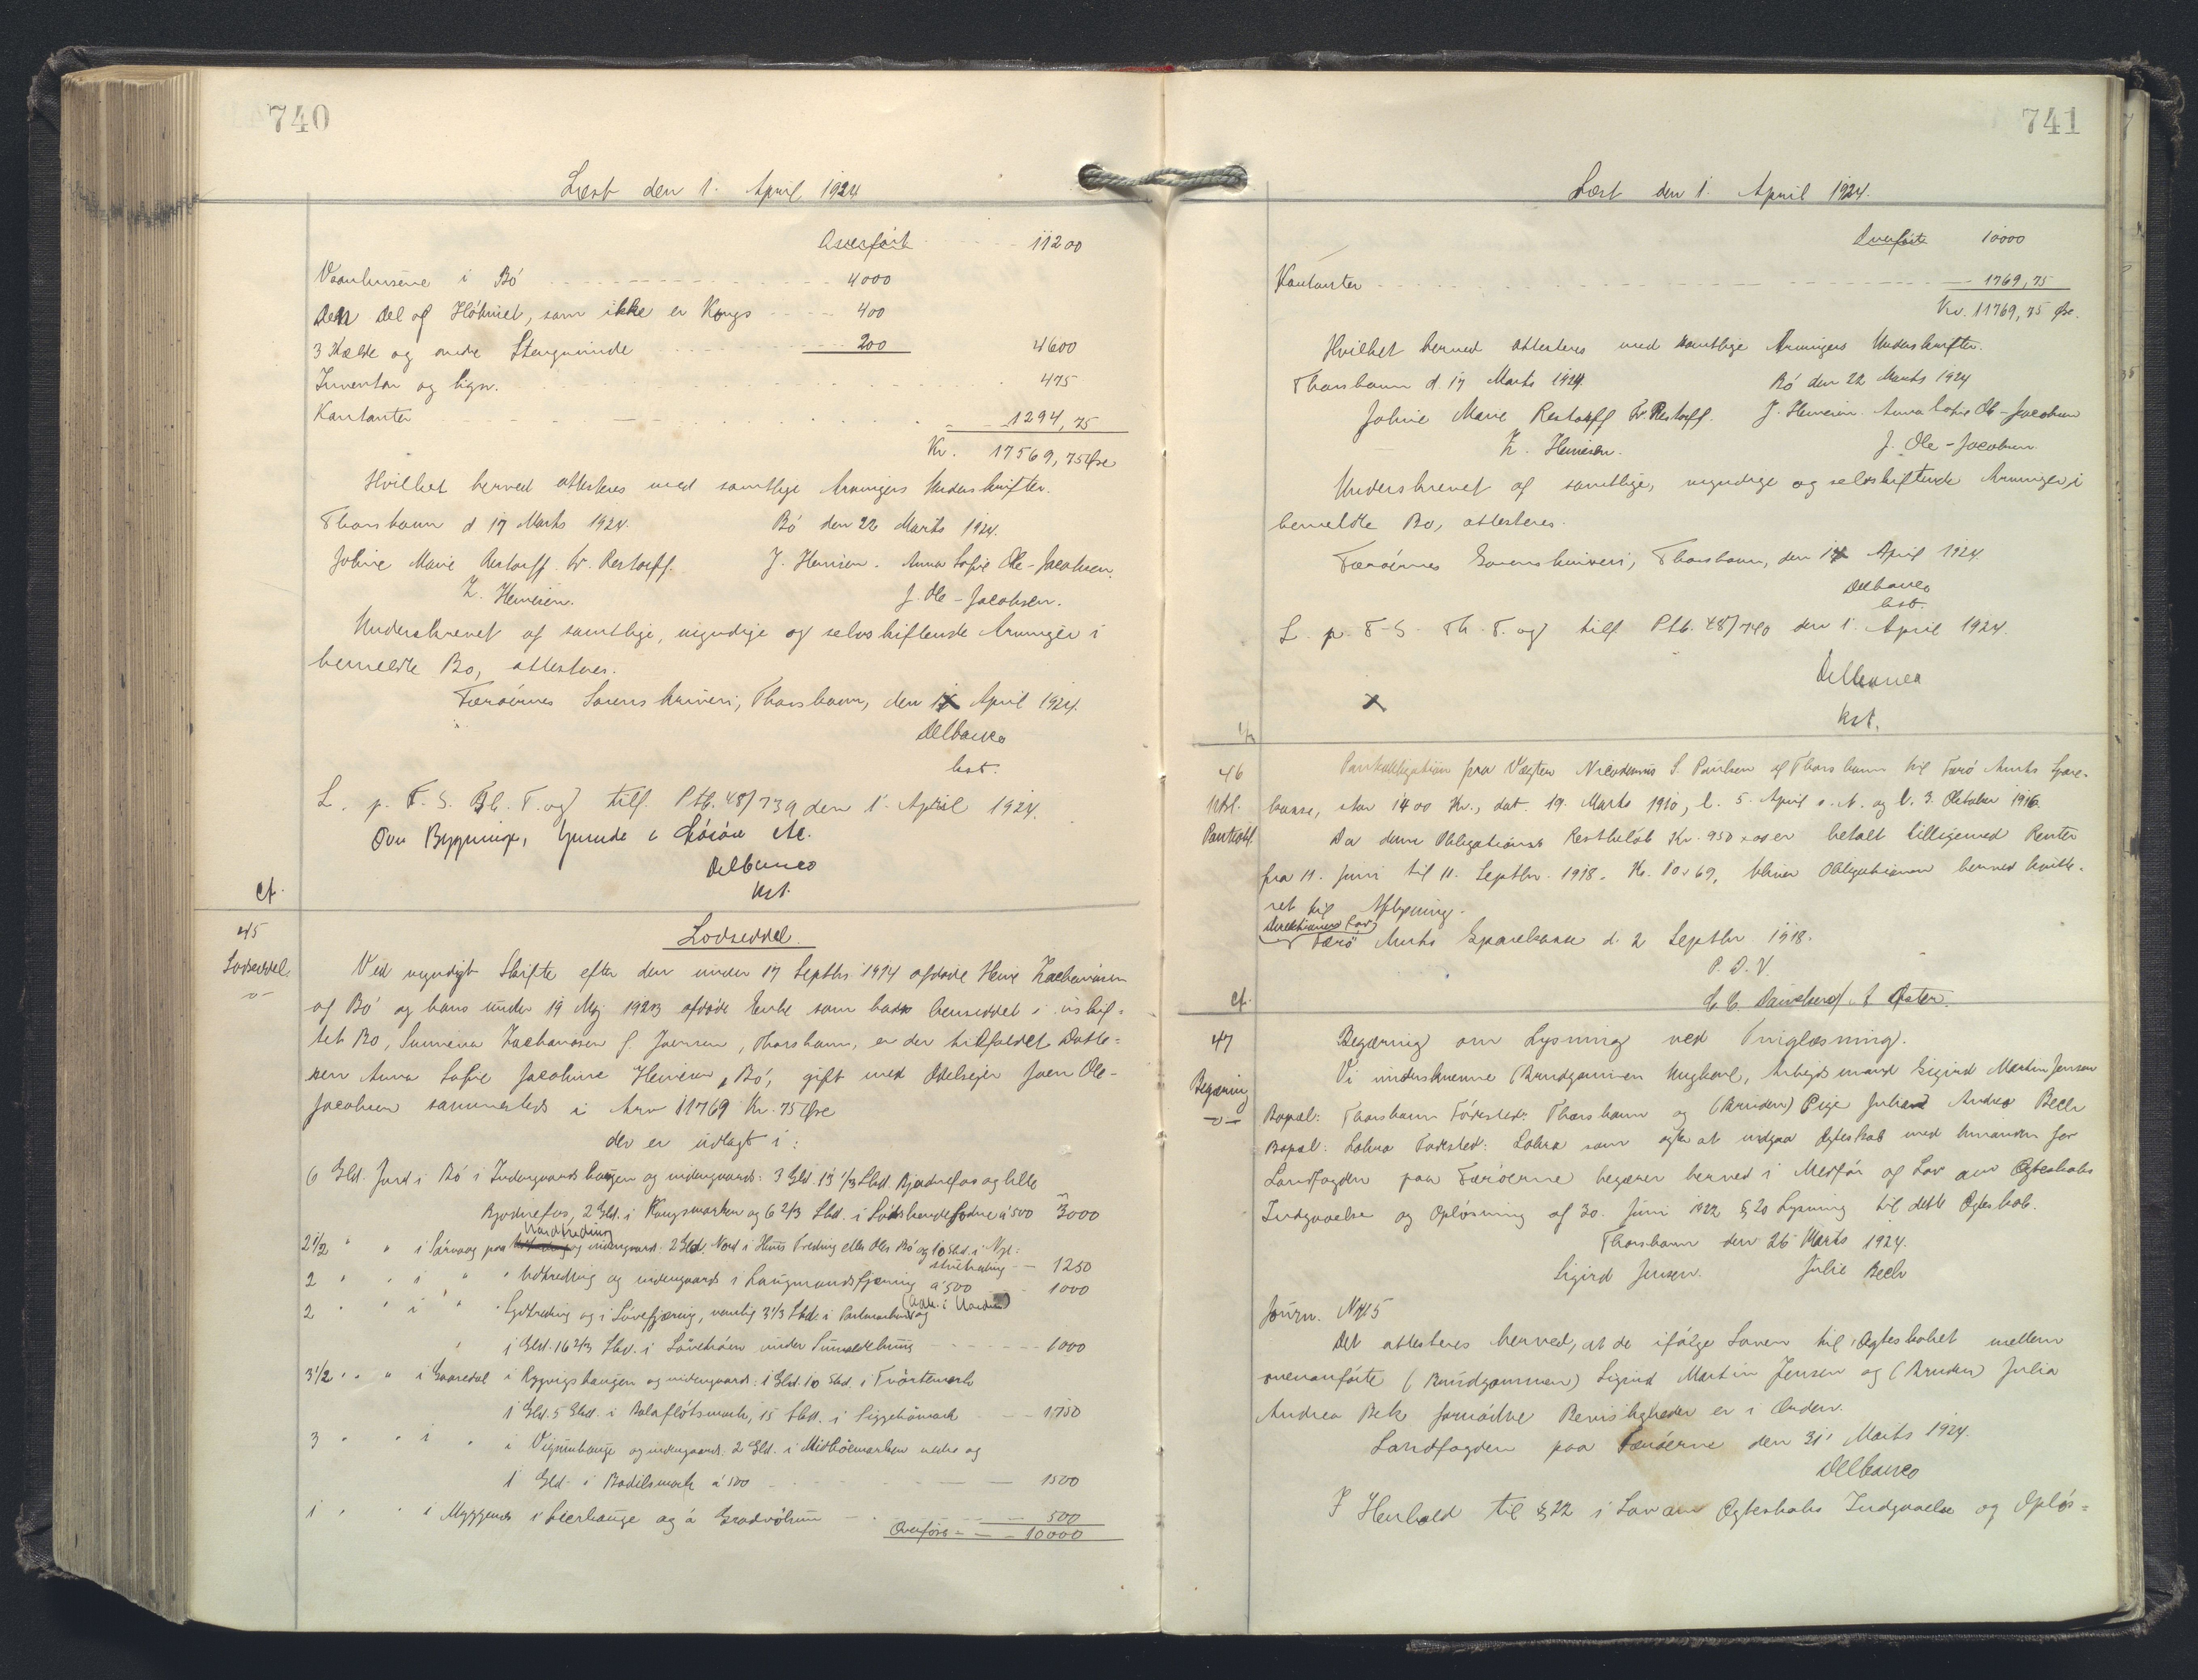 740
Læst den 1. April 1924
Overført 11200
Vaanhusene i Bø 4000
Den Del af Høhuset, som ikke er Kongs 400
3 Hælde og andre Stengrunde 200 4600
Inventar og lign. 475
Kontanter 1294,75
Kr. 17569,75 Øre
Hvilket herved attesteres med samtlige Arvingers Underskrifter.
Thorshavn d 17 Marts 1924. Bø den 22 Marts 1924.
Johne Marie Restorff. W. Restorff. J. Heinesen. Anna Sofie Ole-Jacobsen.
Z. Heinesen. J. Ole-Jacobsen.
Underskrevet af samtlige, myndige og selvskiftende Arvinger i
bemeldte Bo, attesteres.
Færøernes Sorenskriveri, Thorshavn, den 1 April 1924.
Delbanco
kst.
L. p. F. S. Th. T. og tilf. Ptb. 48/739 den 1. April 1924.
Om Bygning, Grunde
Delbanco
kst.
cf.
45
Lodseddel.
Lodseddel.
Ved myndigt Skifte efter den under 17 Septbr 1914 afdøde Heine Zachariasen
af Bø og hans under 19 Maj 1923 afdøde Enke som hans hensiddet i uskif-
tet Bo, Sunneva Zachariasen f. Joensen, Thorshavn, er der tilfaldet Datte-
ren Anna Sofie Jacobine Heinesen, Bø, gift med Odelsejer Joen Ole-
Jacobsen sammesteds i Arv 11769 Kr. 75 Øre
der er udlagt i:
6 Gld. Jord i Bø i Indengaards haugen og undengaards: 3 Gld. 13 1/3 Skd. Bjadnefos og lille
Bjodnefos, 2 Gld. i Kongsmarken og 6 2/3 Skd. i á 500 3000
Nordtrøding
2 1/2 " " i Sørvaag paa og undengaard. 2 Gld. Nord i Heines Trøding eller Oles Bø og 10 Skd. i
1250
2 " " i " " Udtrøding og undengaards i á 500 1000
2 " " i " " Sydtrøding og i nemlig 3 1/3 Skd. i og
1 Gld. 16 2/3 Skd. i under 1000
3 1/2 " " i Gaasedal i Rygvigs haugen og undengaards. 1 Gld. 10 Skd. i
1 Gld. 5 Skd. i 15 Skd. i 1750
3 " " i " i og undengaards. 2 Gld. i nedre og
1 Gld. i Bødilsmark á 500 1500
1 " " i Myggenæs i Leerhauge og á 500
Overføres 10000
741
Læst den 1. April 1924.
Overført 10000
Kontanter 1769,75
Kr. 11769,75 Øre.
Hvilket herved attesteres med samtlige Arvingers Underskrifter.
Thorshavn d 17 Marts 1924. Bø den 22 Marts 1924
Johne Marie Restorff W. Restorff. J. Heinesen. Anna Sofie Ole-Jacobsen
Z. Heinesen. J. Ole-Jacobsen.
Underskrevet af samtlige, myndige og selvskiftende Arvinger i
bemeldte Bo, attesteres.
Færøernes Sorenskriveri, Thorshavn, den 1 April 1924
Delbanco
kst.
L. p. F. S. Th. T. og tilf. Ptb. 48/740 den 1. April 1924.
Delbanco
kst.
46
Pantobligation fra Vægter Nicodemus S. Poulsen af Thorshavn til Færø Amts Spare-
Udsl.
kasse, stor 1400 Kr., dat. 19. Marts 1910, l. 5. April s. A. og l. 3. Oktober 1916.
Pantobl.
Da denne Obligations Restbeløb Kr. 950 er betalt tilligemed Renter
fra 11. Juni til 11. Septbr. 1918. Kr. 10,69, bliver Obligationen herved kvitte-
ret til Aflysning.
Direktionen for
Færø Amts Sparekasse d. 2 Septbr 1918.
P. D. V.
cf.
C. C. Danielsen / A Øster.
47
Begæring
Begæring om Lysning ved Tinglæsning.
Vi underskrevne (Brudgommen Ungkarl, Arbejdsmand Sigurd Martin Jensen
Bopæl: Thorshavn Fødested: Thorshavn og (Bruden) Pige Julia Andrea Bech
Bopæl: Lobra Fødested: Lobra som agter at indgaa Ægteskab med hinanden for
Landfogden paa Færøerne begærer herved i Medfør af Lov om Ægteskabs
Indgaaelse og Opløsning af 30. Juni 1922 § 20 Lysning til dette Ægteskab.
Thorshavn den 26 Marts 1924.
Sigurd Jensen. Julie Bech
Journ. Nr 15
Det attesteres herved, at de ifølge Loven til Ægteskabet mellem
ovenanførte (Brudgommen) Sigurd Martin Jensen og (Bruden) Julia
Andrea Bek fornødne Bevisligheder er i Orden.
Landfogden paa Færøerne den 31' Marts 1924.
Delbanco
I Henhold til § 22 i Lov om Ægteskabs Indgaaelse og Opløs-